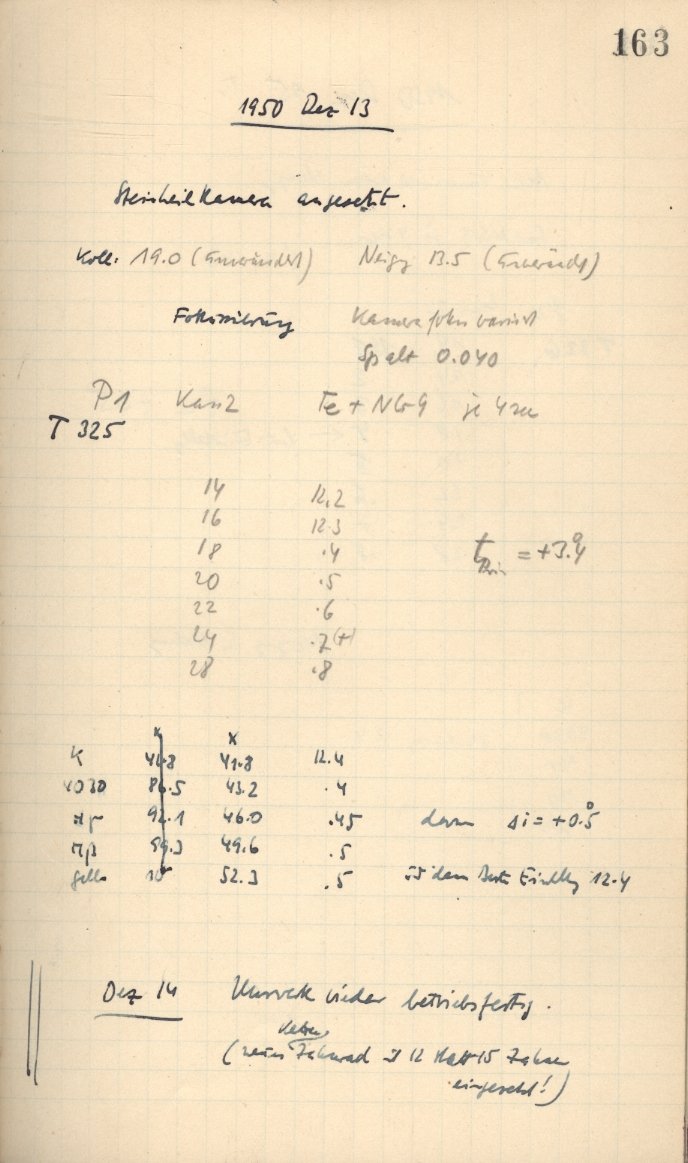 163
1950 Dez 13
Steinheil Kamera angesetzt.
Koll. 19.0 (unverändert) Neigg 13.5 (unverändt)
Fokussierung Kamerafokus variiert
Spalt 0.040
P1 Kass2 Fe + NG-9 je 4 sec
T 325
14 12.2
16 12.3
18 .4
20 .5
22 .6
24 .7(+)
28 .8
t = +3.°4
x x
K 41.8 12.4
4030 86.5 43.2 .4
Hγ 92.1 46.0 .45 dann Δi = +0.°5
Hβ 59.3 49.6 .5
gelb 10 52.3 .5 ist dann beste Einstllg 12.4
Dez 14 Uhrwerk wieder betriebsfertig.
(neues Zahnrad mit 12 statt 15 Zähnen
eingesetzt!)